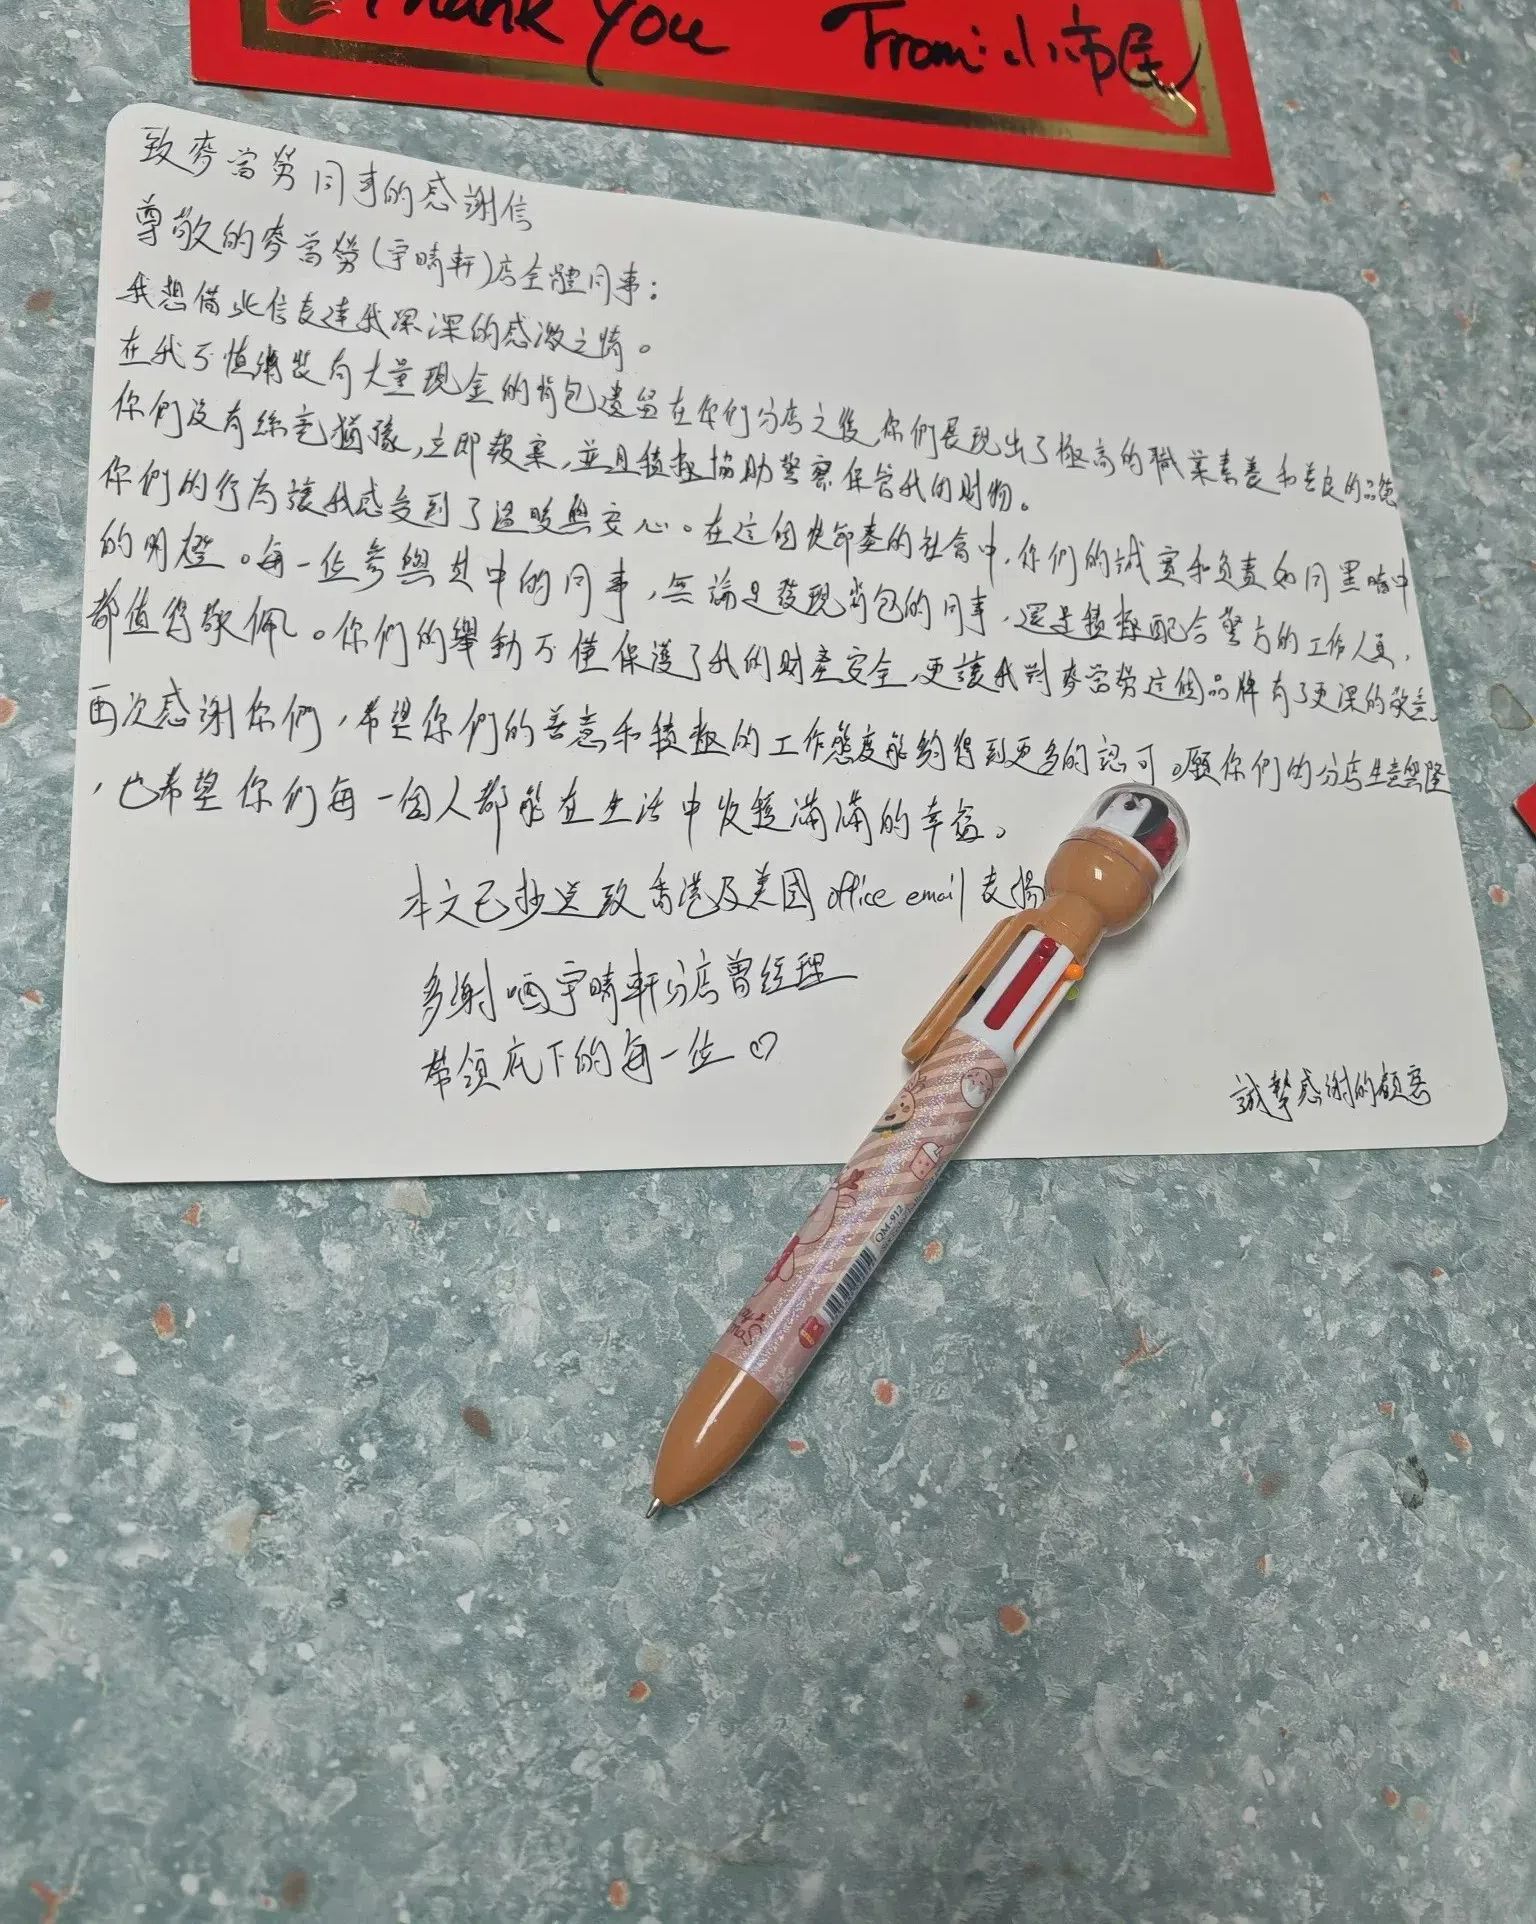 Thank You From: 小市民
致麥當勞同事的感謝信
尊敬的麥當勞(宇晴軒)店全體同事：
我想借此信表達我深深的感激之情。
在我不慎將裝有大量現金的背包遺留在你們分店之後,你們展現出了極高的職業素養和善良的品德
你們沒有絲毫猶豫,立即報案,並且積極協助警察保管我的財物。
你們的行為讓我感受到了溫暖與安心。在這個快節奏的社會中,你們的誠實和負責如同黑暗中
的明燈。每一位參與其中的同事,無論是發現背包的同事,還是積極配合警方的工作人員,
都值得敬佩。你們的舉動不僅保護了我的財產安全,更讓我對麥當勞這個品牌有了更深的敬意。
再次感謝你們,希望你們的善意和積極的工作態度能夠得到更多的認可。願你們的分店生意興隆
,也希望你們每一個人都能在生活中收穫滿滿的幸福。
本文已抄送致香港及美國office email表揚
多謝晒宇晴軒分店曾經理
帶領底下的每一位♡
誠摯感謝的顧客
QM-912